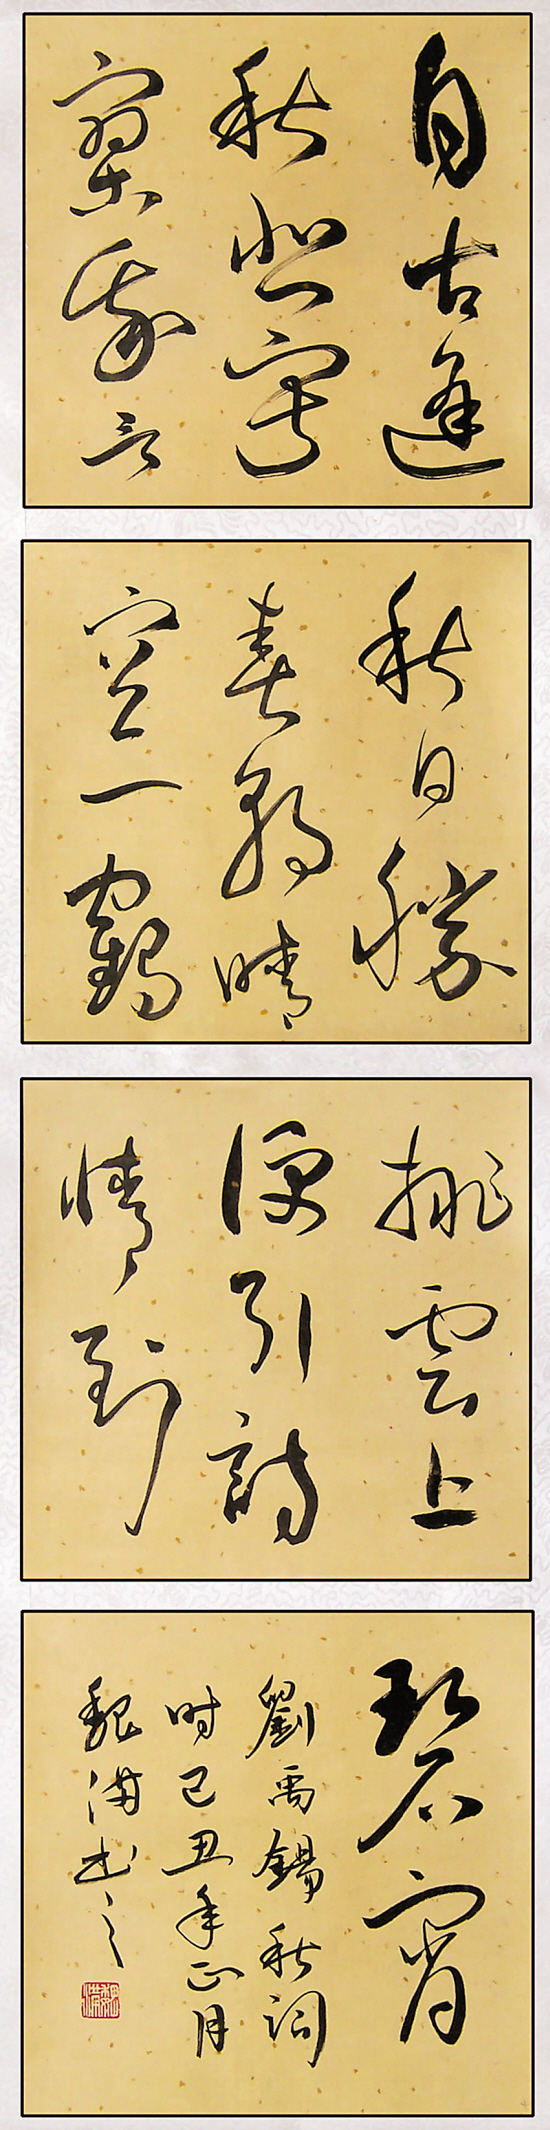 自古逢
秋悲寂
寥我言
秋日勝
春朝晴
空一鶴
排雲上
便引詩
情到
碧宵
劉禹錫秋詞
时己丑年正月
魏满书之